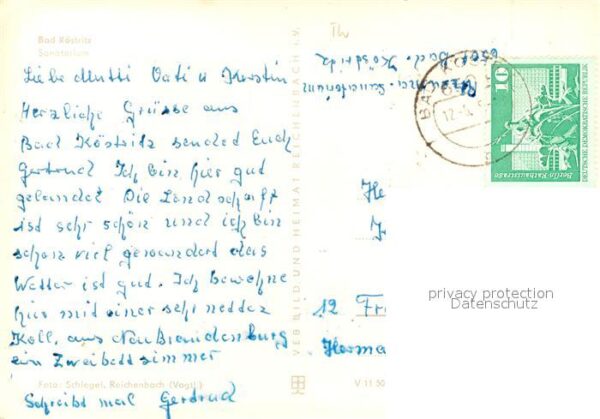 Bad Köstritz
Sanatorium
Liebe Mutti Vati u Kerstin
Herzliche Grüsse aus
Bad Köstritz sendet Euch
Gertrud Ich bin hier gut
gelandet Die Landschaft
ist sehr schön und ich bin
schon viel gewandert das
Wetter ist gut. Ich bewohne
hier mit einer sehr netten
Koll. aus Neubrandenburg
ein Zweibettzimmer
Foto: Schlegel, Reichenbach (Vogtl.)
Schreibt mal Gertrud
VEB BILD UND HEIMAT REICHENBACH i. V.
Th
Sanatorium
6504 Bad Köstritz
BAD KÖST
12
10
Berlin, Rathausstraße
DEUTSCHE DEMOKRATISCHE REPUBLIK
He
12 Fr
Herma
V 11 50
privacy protection
Datenschutz